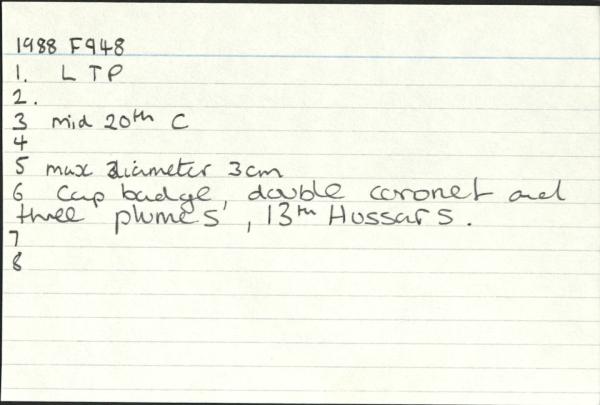 1988 F948
1. LTP
2.
3 mid 20th C
4
5 max diameter 3cm
6 Cap badge, double coronet and
three plumes, 13th Hussars.
7
8